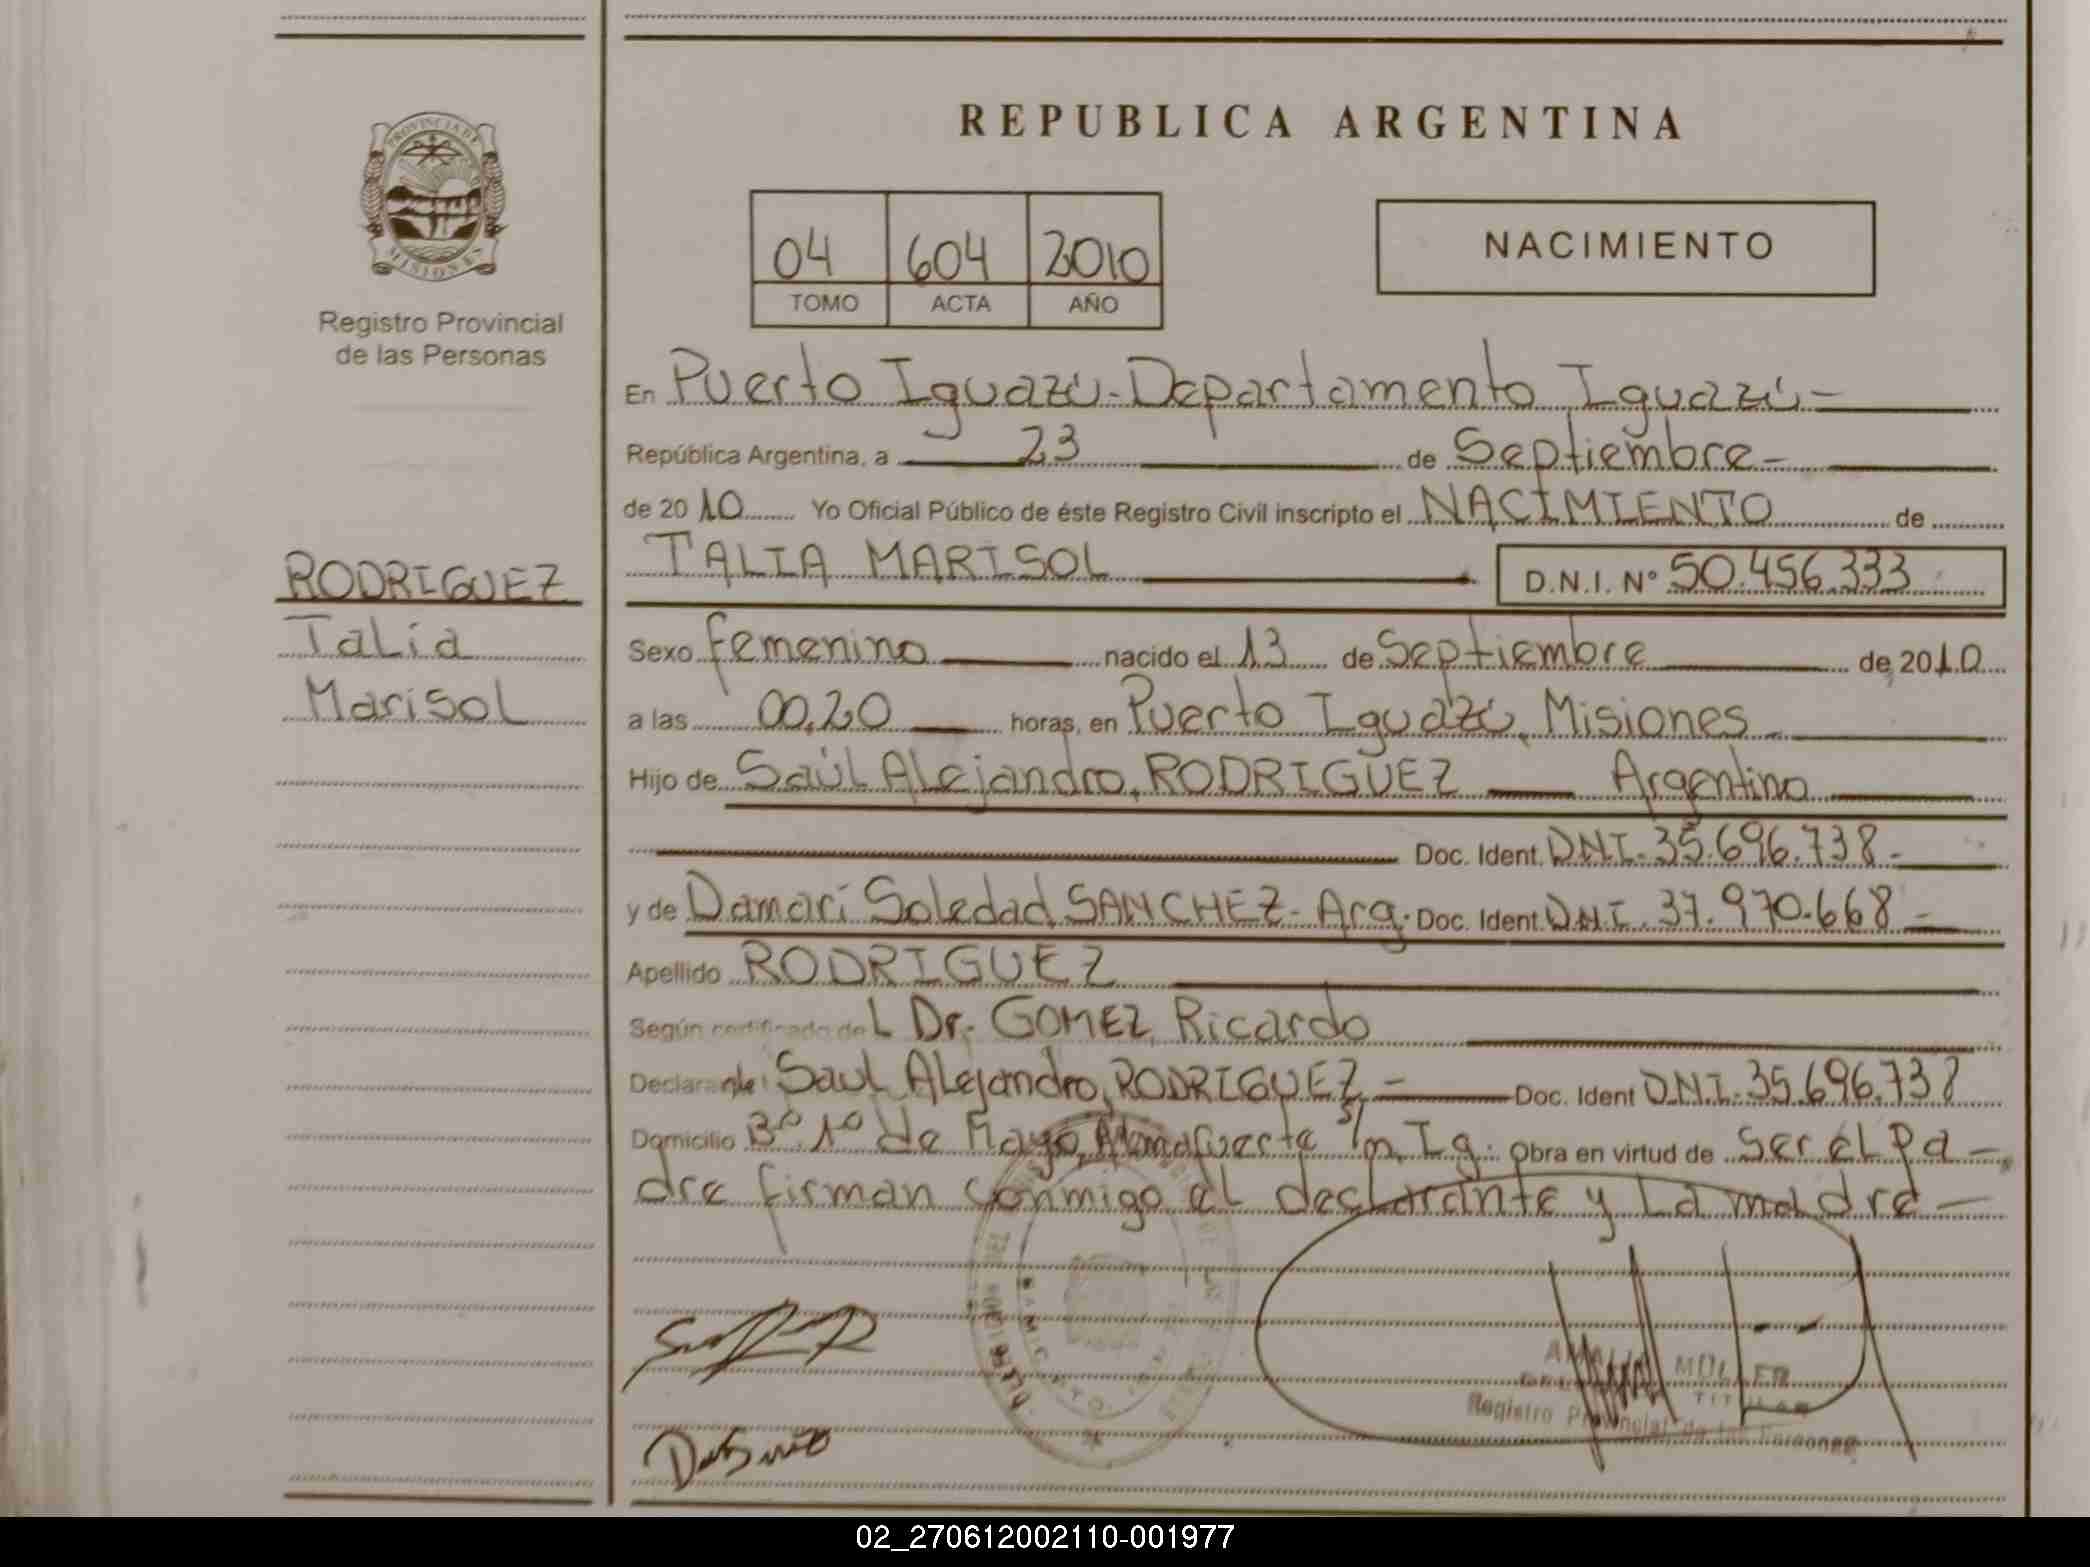 REPUBLICA ARGENTINA
PROVINCIA DE MISIONES
Registro Provincial
de las Personas
04 604 2010
TOMO ACTA AÑO
NACIMIENTO
En Puerto Iguazú - Departamento Iguazú -
República Argentina, a 23 de Septiembre -
de 2010 Yo Oficial Público de éste Registro Civil inscripto el NACIMIENTO de
TALIA MARISOL D.N.I. N° 50.456.333
RODRIGUEZ
Talia
Marisol
Sexo femenino nacido el 13 de Septiembre de 2010
a las 00,20 horas, en Puerto Iguazú, Misiones
Hijo de Saúl Alejandro, RODRIGUEZ Argentino
Doc. Ident. DNI. 35.696.738 -
y de Damari Soledad, SANCHEZ - Arg. Doc. Ident DNI. 37.970.668 -
Apellido RODRIGUEZ
Según certificado del Dr. GOMEZ, Ricardo
Declarante: Saul Alejandro, RODRIGUEZ - Doc. Ident D.N.I. 35.696.738
Domicilio B° 1° de Mayo, Almafuerte s/n, Ig. Obra en virtud de ser el pa-
dre firman conmigo el declarante y la madre -
MULLER
TITULAR
Registro Provincial de las Personas
02_270612002110-001977